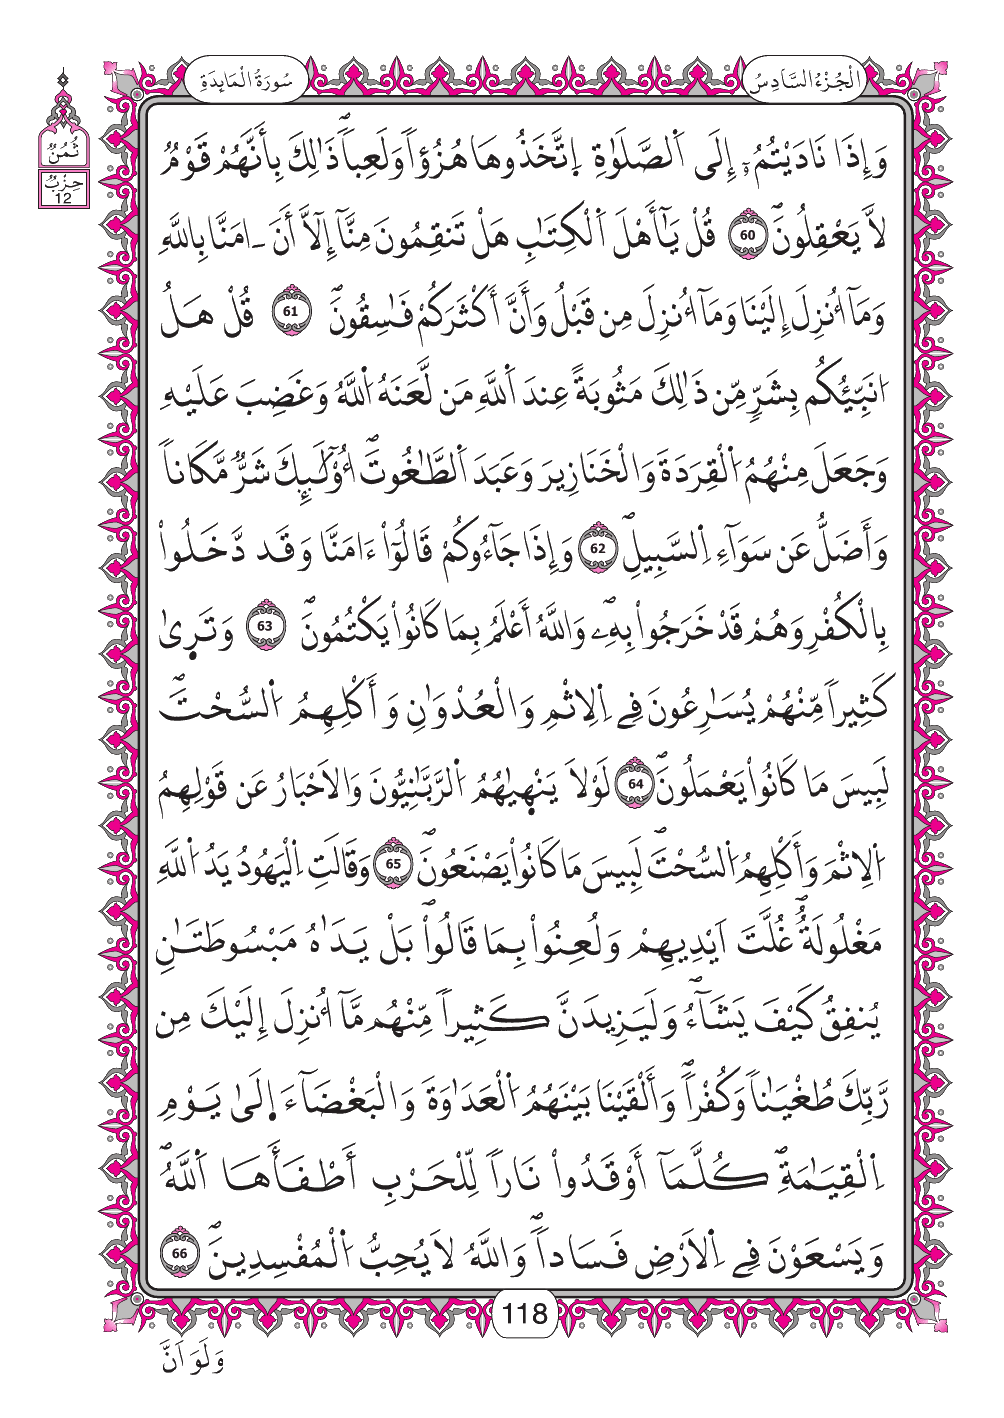 الْجُزْءُ السَّادِسُ
سُورَةُ الْمَايِدَةِ
ثُمُنُ
حِزْبُ
12
وَإِذَا نَادَيْتُمُۥٓ إِلَى اَ۬لصَّلَوٰةِ اِ۪تَّخَذُوهَا هُزُؤاٗ وَلَعِباٗۖ ذَٰلِكَ بِأَنَّهُمْ قَوْمٞ
لَّا يَعْقِلُونَۖ 60 قُلْ يَٰٓأَهْلَ اَ۬لْكِتَٰبِ هَلْ تَنقِمُونَ مِنَّآ إِلَّآ أَنَ اٰمَنَّا بِاللَّهِ
وَمَآ أُنزِلَ إِلَيْنَا وَمَآ أُنزِلَ مِن قَبْلُ وَأَنَّ أَكْثَرَكُمْ فَٰسِقُونَۖ 61 قُلْ هَلُ
ا۟نَبِّئُكُم بِشَرّٖ مِّن ذَٰلِكَ مَثُوبَةً عِندَ اَ۬للَّهِ مَن لَّعَنَهُ اُ۬للَّهُ وَغَضِبَ عَلَيْهِ
وَجَعَلَ مِنْهُمُ اُ۬لْقِرَدَةَ وَالْخَنَازِيرَ وَعَبَدَ اَ۬لطَّٰغُوتَۖ أُوْلَٰٓئِكَ شَرّٞ مَّكَاناٗ
وَأَضَلُّ عَن سَوَآءِ اِ۬لسَّبِيلِۖ 62 وَإِذَا جَآءُوكُمْ قَالُوٓاْ ءَامَنَّا وَقَد دَّخَلُواْ
بِالْكُفْرِ وَهُمْ قَدْ خَرَجُواْ بِهِۦۖ وَاللَّهُ أَعْلَمُ بِمَا كَانُواْ يَكْتُمُونَۖ 63 وَتَر۪يٰ
كَثِيراٗ مِّنْهُمْ يُسَٰرِعُونَ فِے اِ۬لِاثْمِ وَالْعُدْوَٰنِ وَأَكْلِهِمُ اُ۬لسُّحْتَۖ
لَبِيسَ مَا كَانُواْ يَعْمَلُونَۖ 64 لَوْلَا يَنْه۪يٰهُمُ اُ۬لرَّبَّٰنِيُّونَ وَالَاحْبَارُ عَن قَوْلِهِمُ
اُ۬لِاثْمَ وَأَكْلِهِمُ اُ۬لسُّحْتَۖ لَبِيسَ مَا كَانُواْ يَصْنَعُونَۖ 65 وَقَالَتِ اِ۬لْيَهُودُ يَدُ اُ۬للَّهِ
مَغْلُولَةٌۖ غُلَّتَ اَيْدِيهِمْ وَلُعِنُواْ بِمَا قَالُواْۖ بَلْ يَدَٰهُ مَبْسُوطَتَٰنِ
يُنفِقُ كَيْفَ يَشَآءُۖ وَلَيَزِيدَنَّ كَثِيراٗ مِّنْهُم مَّآ أُنزِلَ إِلَيْكَ مِن
رَّبِّكَ طُغْيَٰناٗ وَكُفْراٗۖ وَأَلْقَيْنَا بَيْنَهُمُ اُ۬لْعَدَٰوَةَ وَالْبَغْضَآءَ اِ۪لَىٰ يَوْمِ
اِ۬لْقِيَٰمَةِۖ كُلَّمَآ أَوْقَدُواْ نَاراٗ لِّلْحَرْبِ أَطْفَأَهَا اَ۬للَّهُۖ
وَيَسْعَوْنَ فِے اِ۬لَارْضِ فَسَاداٗۖ وَاللَّهُ لَا يُحِبُّ اُ۬لْمُفْسِدِينَۖ 66
118
وَلَوَ اَنَّ